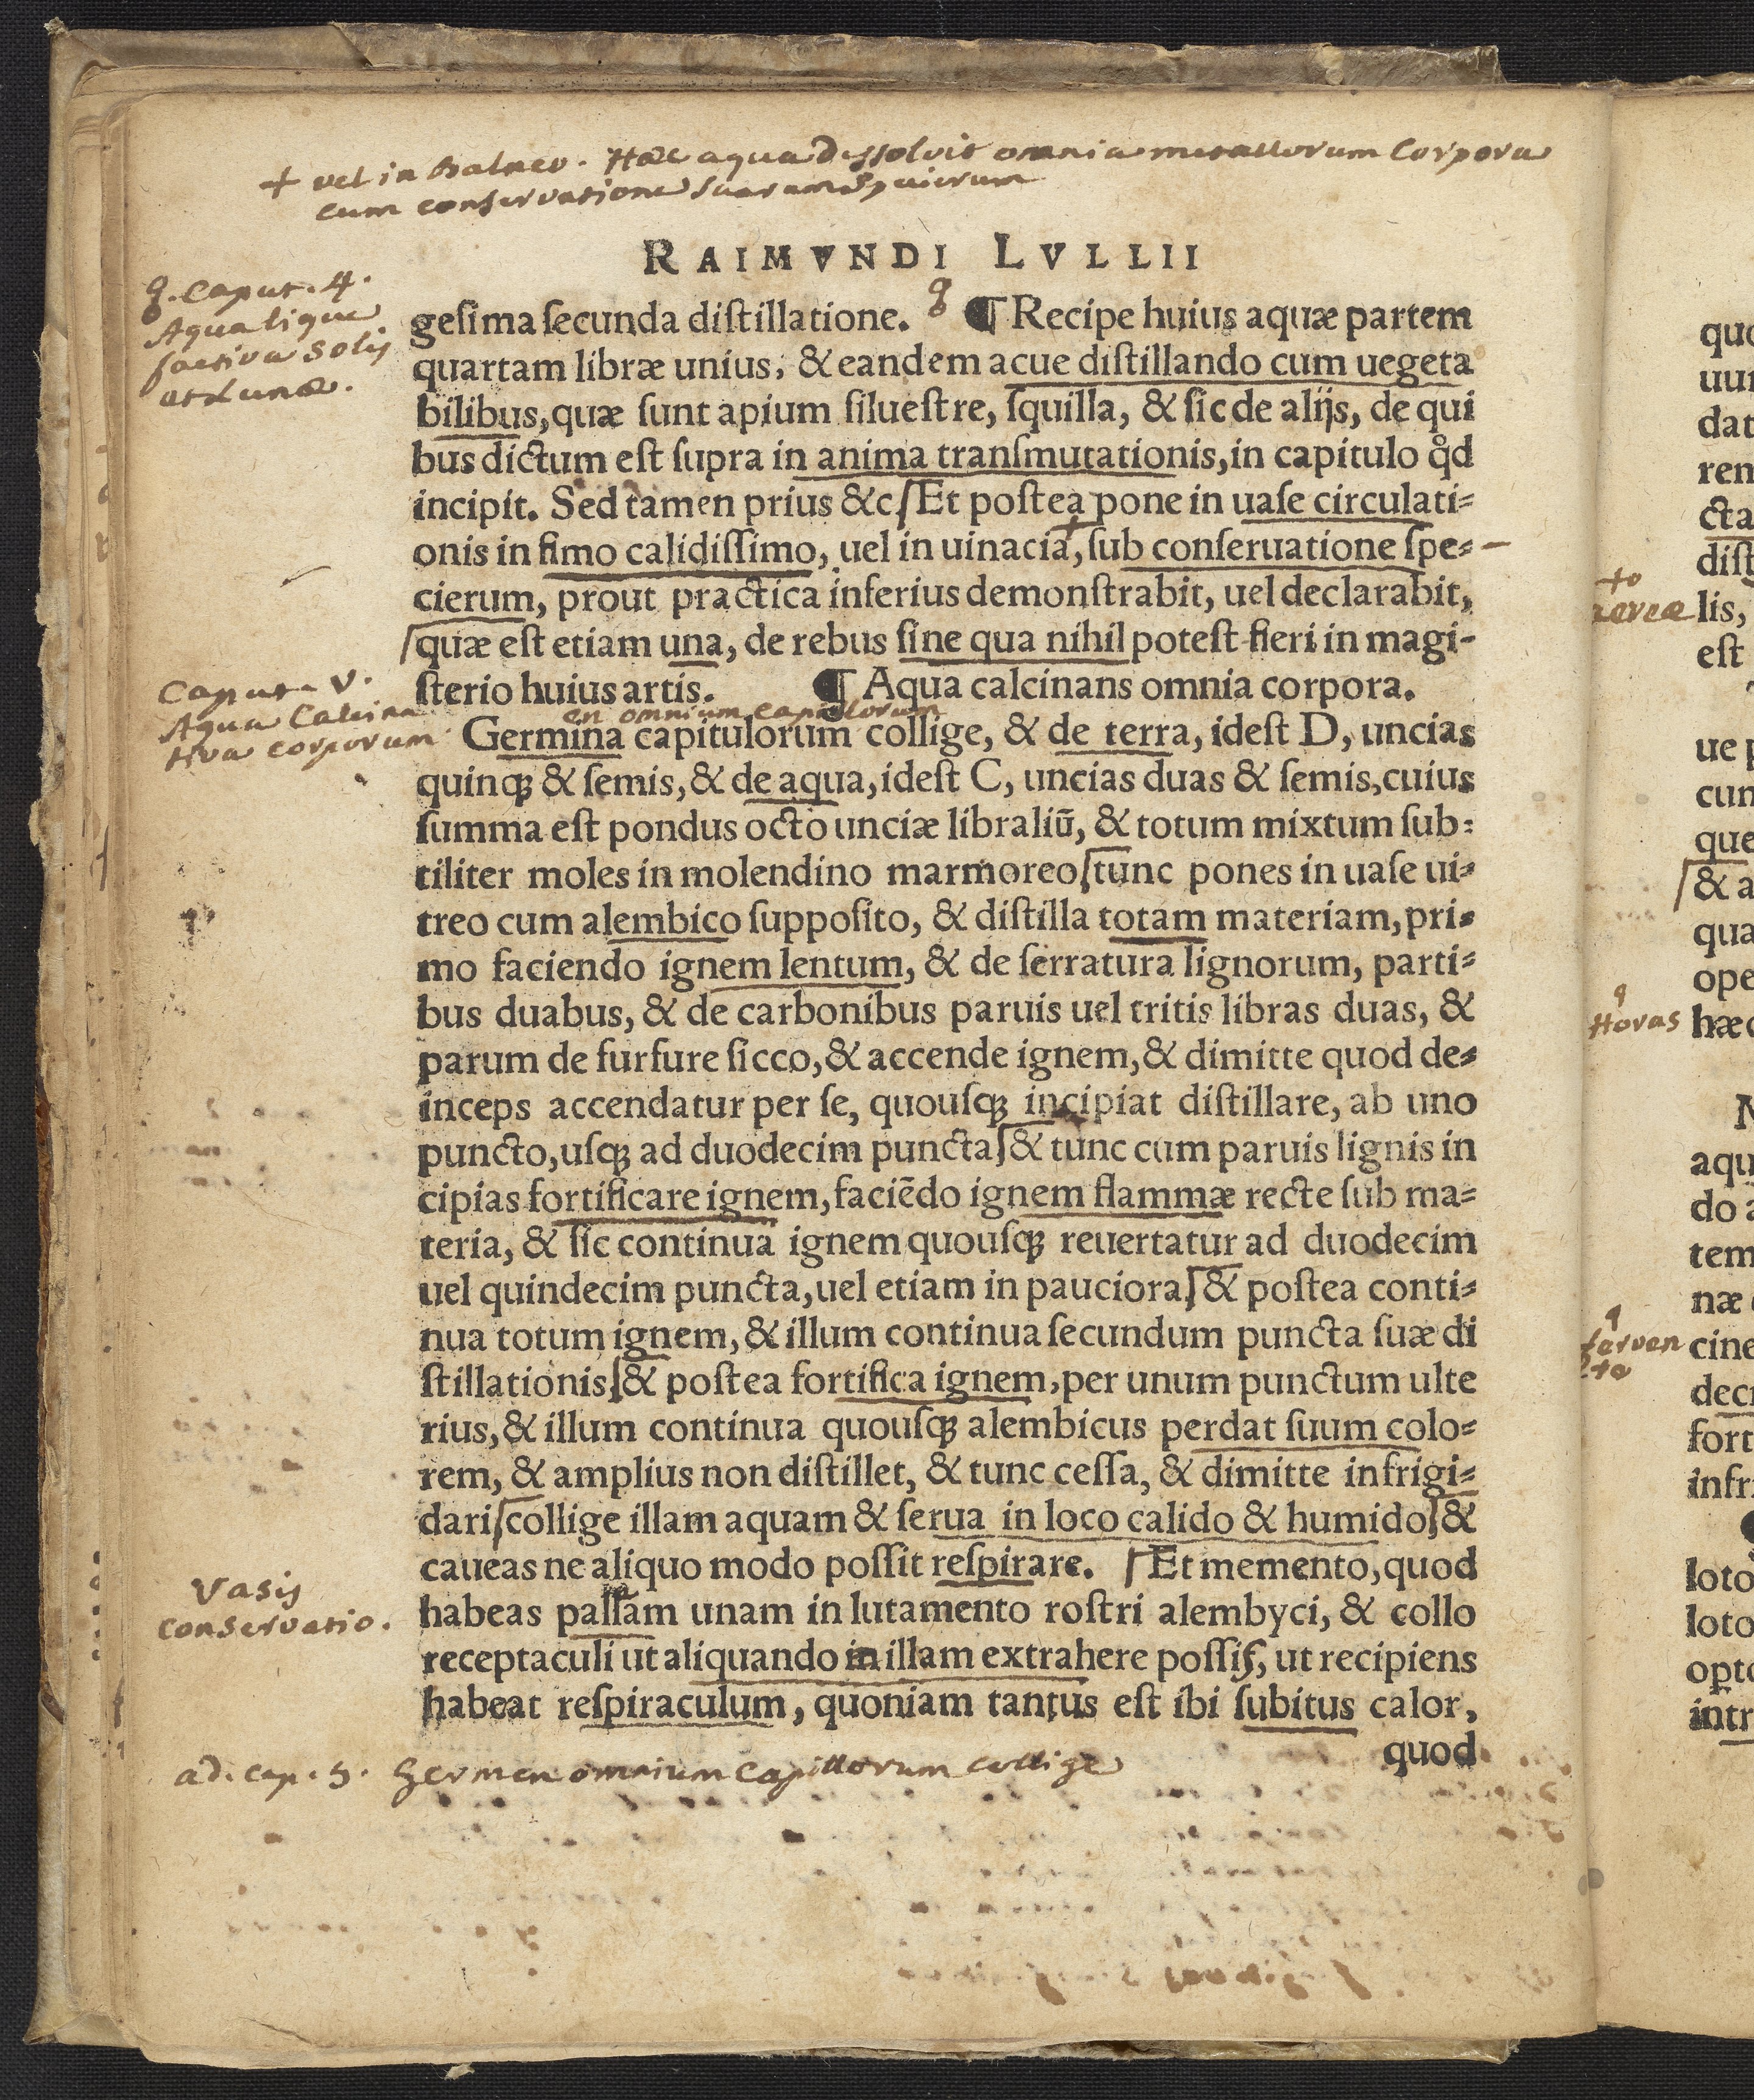 + vel in Balneo. Hæc aqua dissolvit omnia metallorum Corpora
cum conservatione suarum specierum
RAIMVNDI LVLLII
caput. 4.
Aqua lique
factiva Solis
et Lunæ.
gesima secunda distillatione. ¶ Recipe huius aquæ partem
quartam libræ unius, & eandem acue distillando cum uegeta
bilibus, quæ sunt apium siluestre, squilla, & sic de alijs, de qui
bus dictum est supra in anima transmutationis, in capitulo qd̊
incipit. Sed tamen prius &c. Et postea pone in uase circulati=
onis in fimo calidissimo, uel in uinacia, + sub conseruatione spe=
cierum, prout practica inferius demonstrabit, uel declarabit,
quæ est etiam una, de rebus sine qua nihil potest fieri in magi-
sterio huius artis. ¶ Aqua calcinans omnia corpora.
Caput V.
Aqua Calcina
tiva corporum
en omnium capillorum
Germina capitulorum collige, & de terra, idest D, uncias
quinq; & semis, & de aqua, idest C, uncias duas & semis, cuius
summa est pondus octo unciæ libraliũ, & totum mixtum sub=
tiliter moles in molendino marmoreo tunc pones in uase ui=
treo cum alembico supposito, & distilla totam materiam, pri=
mo faciendo ignem lentum, & de serratura lignorum, parti=
bus duabus, & de carbonibus paruis uel tritis libras duas, &
parum de furfure sicco, & accende ignem, & dimitte quod de=
inceps accendatur per se, quousq; incipiat distillare, ab uno
puncto, usq; ad duodecim puncta & tunc cum paruis lignis in
cipias fortificare ignem, faciẽdo ignem flammæ recte sub ma=
teria, & sic continua ignem quousq; reuertatur ad duodecim
uel quindecim puncta, uel etiam in pauciora, & postea conti=
nua totum ignem, & illum continua secundum puncta suæ di
stillationis, & postea fortifica ignem, per unum punctum ulte
rius, & illum continua quousq; alembicus perdat suum colo=
rem, & amplius non distillet, & tunc cessa, & dimitte infrigi=
dari collige illam aquam & serua in loco calido & humido, &
caueas ne aliquo modo possit respirare. Et memento, quod
Vasis
conservatio.
habeas passam unam in lutamento rostri alembyci, & collo
receptaculi ut aliquando in illam extrahere possis, ut recipiens
habeat respiraculum, quoniam tantus est ibi subitus calor,
quod
ad. cap. 5. Germen omnium Capillorum collige
quo
uun
dat
rem
cta
dist
aereæ
lis,
est
ue p
cun
que
& a
qua
ope
Horas
hæc
aqu
do a
tem
næ
cine
decr
fort
infr
loto
loto
opto
intr